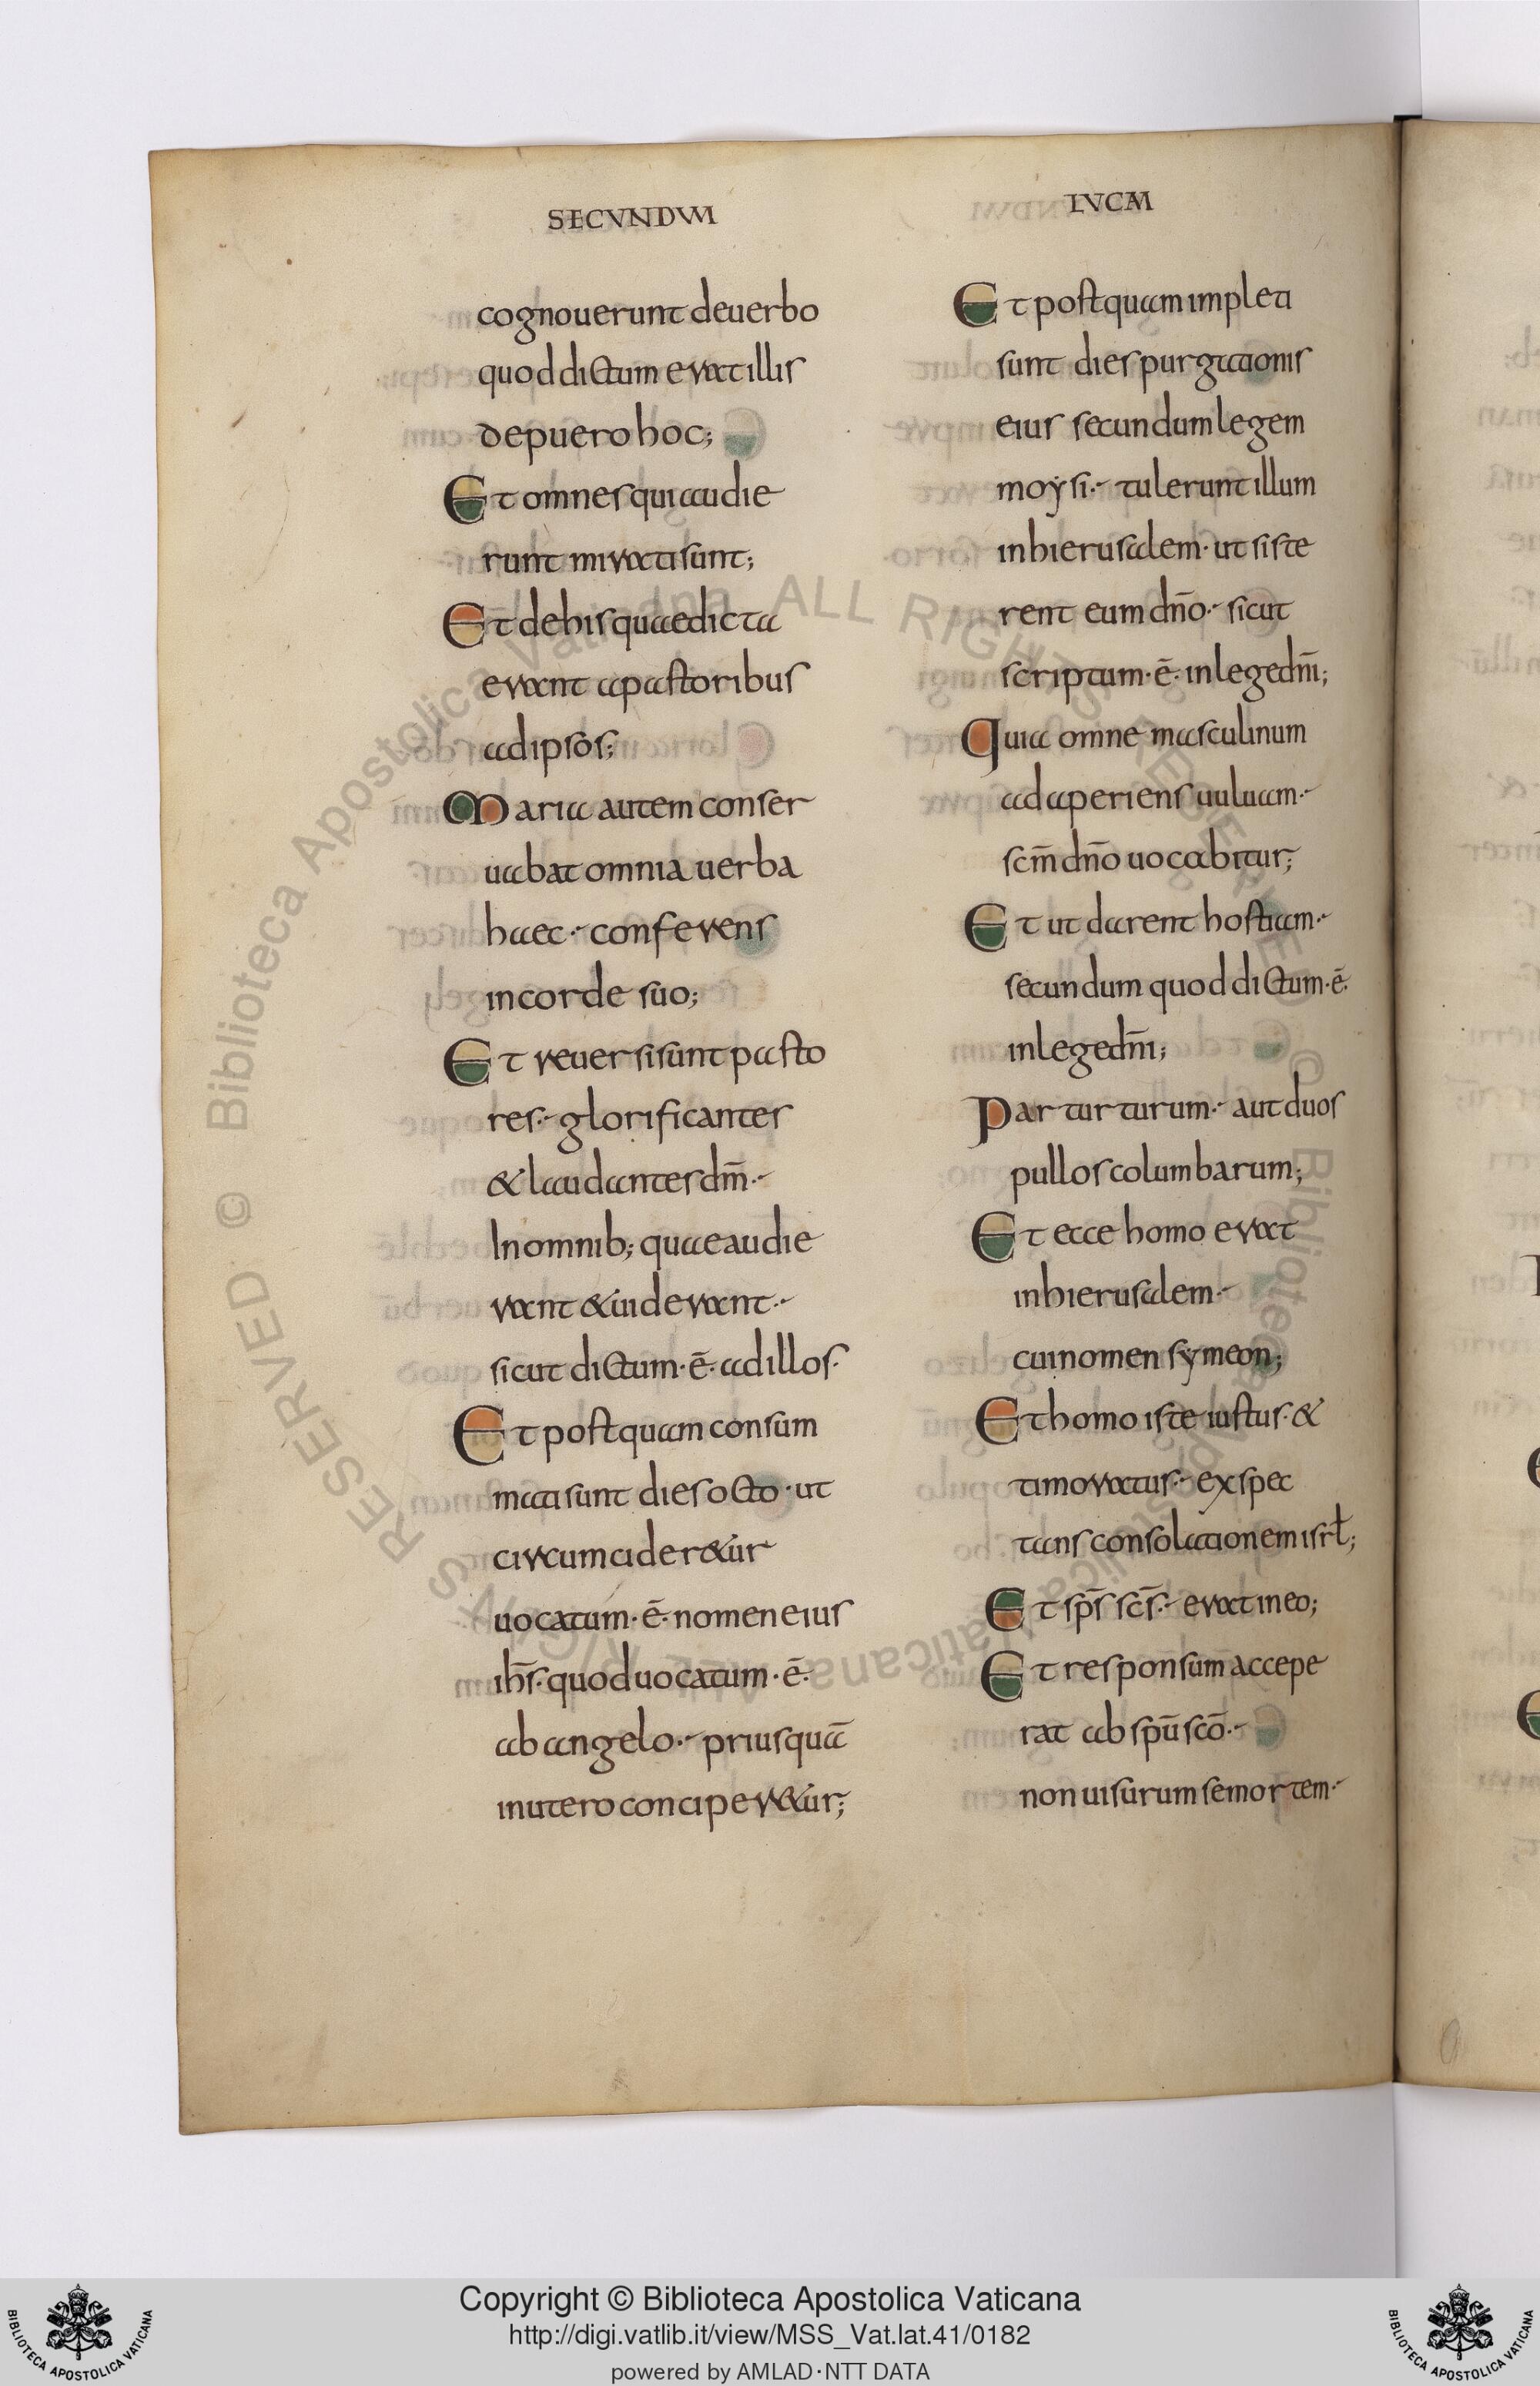 SECUNDUM
cognouerunt deuerbo
quod dictum erat illis
depuero hoc;
Et omnes qui audie
runt mirati sunt;
Et dehis quae dicta
erant apastoribus
adipsos;
Maria autem conser
uabat omnia uerba
haec· conferens
incorde suo;
Et reuersi sunt pasto
res· glorificantes
& laudantes dm̄·
In omnib; quae audie
rant & uiderant·
sicut dictum·ē· adillos·
Et postquam consum
mati sunt dies octo· ut
circumcider&ur
uocatum·ē· nomen eius
ih̄s· quod uocatum·ē·
ab angelo· priusquā
inutero conciper&ur;
LUCAM
Et postquam impleti
sunt dies purgationis
eius secundum legem
moysi· tulerunt illum
inhierusalem· ut siste
rent eum dn̄o· sicut
scriptum·ē· inlege dn̄i;
Quia omne masculinum
adaperiens uuluam·
scm̄ dn̄o uocabitur;
Et ut darent hostiam·
secundum quod dictum·ē·
inlege dn̄i;
Par turturum· aut duos
pullos columbarum;
Et ecce homo erat
inhierusalem·
cui nomen symeon;
Et homo iste iustus· &
timoratus· exspec
tans consolationem isrl̄;
Et sp̄s sc̄s· erat in eo;
Et responsum accepe
rat ab spū scō·
non uisurum se mortem·
© Biblioteca Apostolica Vaticana ALL RIGHTS RESERVED
© Biblioteca Apostolica Vaticana ALL RIGHTS RESERVED
Copyright © Biblioteca Apostolica Vaticana
http://digi.vatlib.it/view/MSS_Vat.lat.41/0182
powered by AMLAD·NTT DATA
BIBLIOTECA APOSTOLICA VATICANA
BIBLIOTECA APOSTOLICA VATICANA